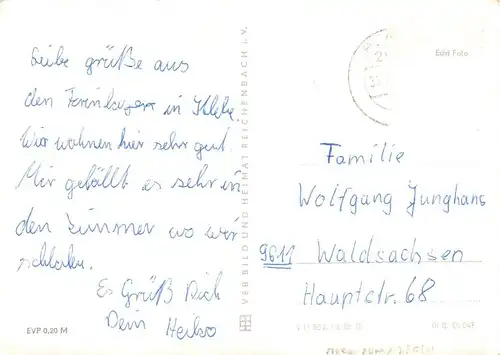 Liebe grüße aus
den Ferienlager in
Wir wohnen hier sehr gut.
Mir gefällt es sehr in
den Zimmer wo wir
schlafen.
Es Grüß Dich
Dein Heiko
EVP 0,20 M
VEB BILD UND HEIMAT REICHENBACH i. V.
Echt Foto
Familie
Wolfgang Junghans
9611 Waldsachsen
Hauptstr. 68